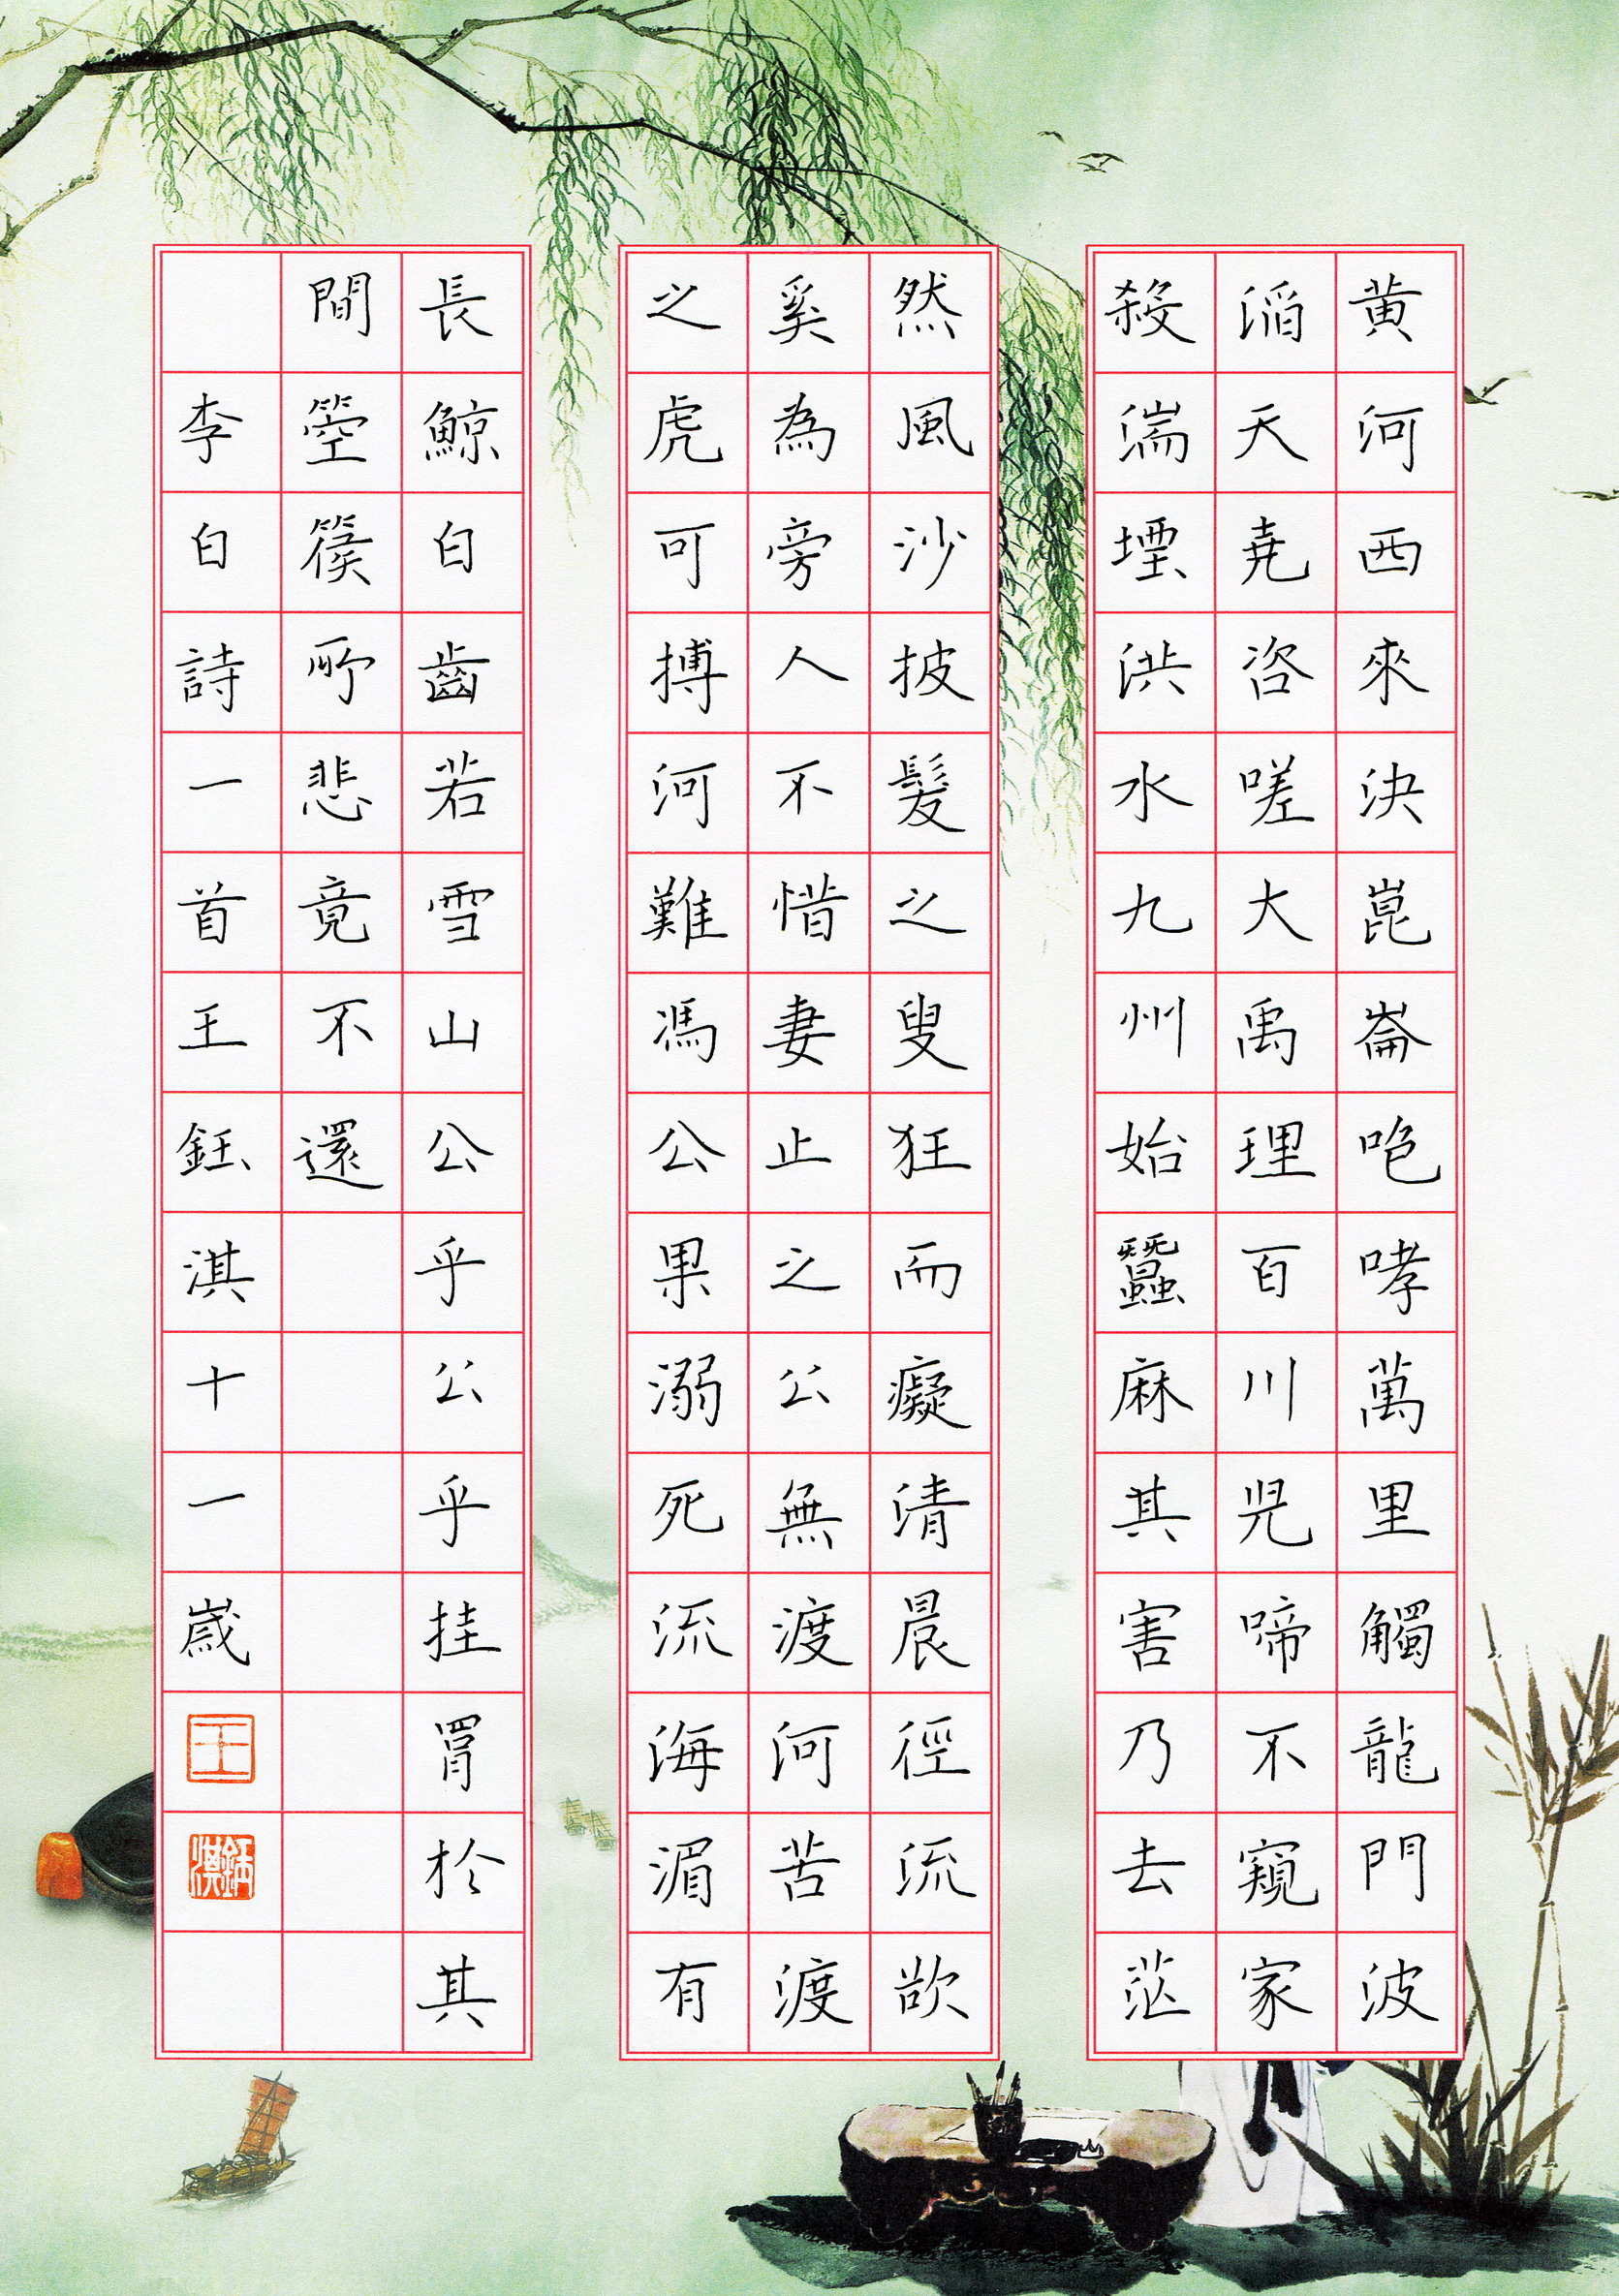 黄河西來決崑崙咆哮萬里觸龍門波
滔天堯咨嗟大禹理百川兒啼不窺家
殺湍堙洪水九州始蠶麻其害乃去茫
然風沙披髮之叟狂而癡清晨徑流欲
奚為旁人不惜妻止之公無渡河苦渡
之虎可搏河難馮公果溺死流海湄有
長鯨白齒若雪山公乎公乎挂罥於其
間箜篌所悲竟不還
李白詩一首王鈺淇十一歲
王
鈺淇